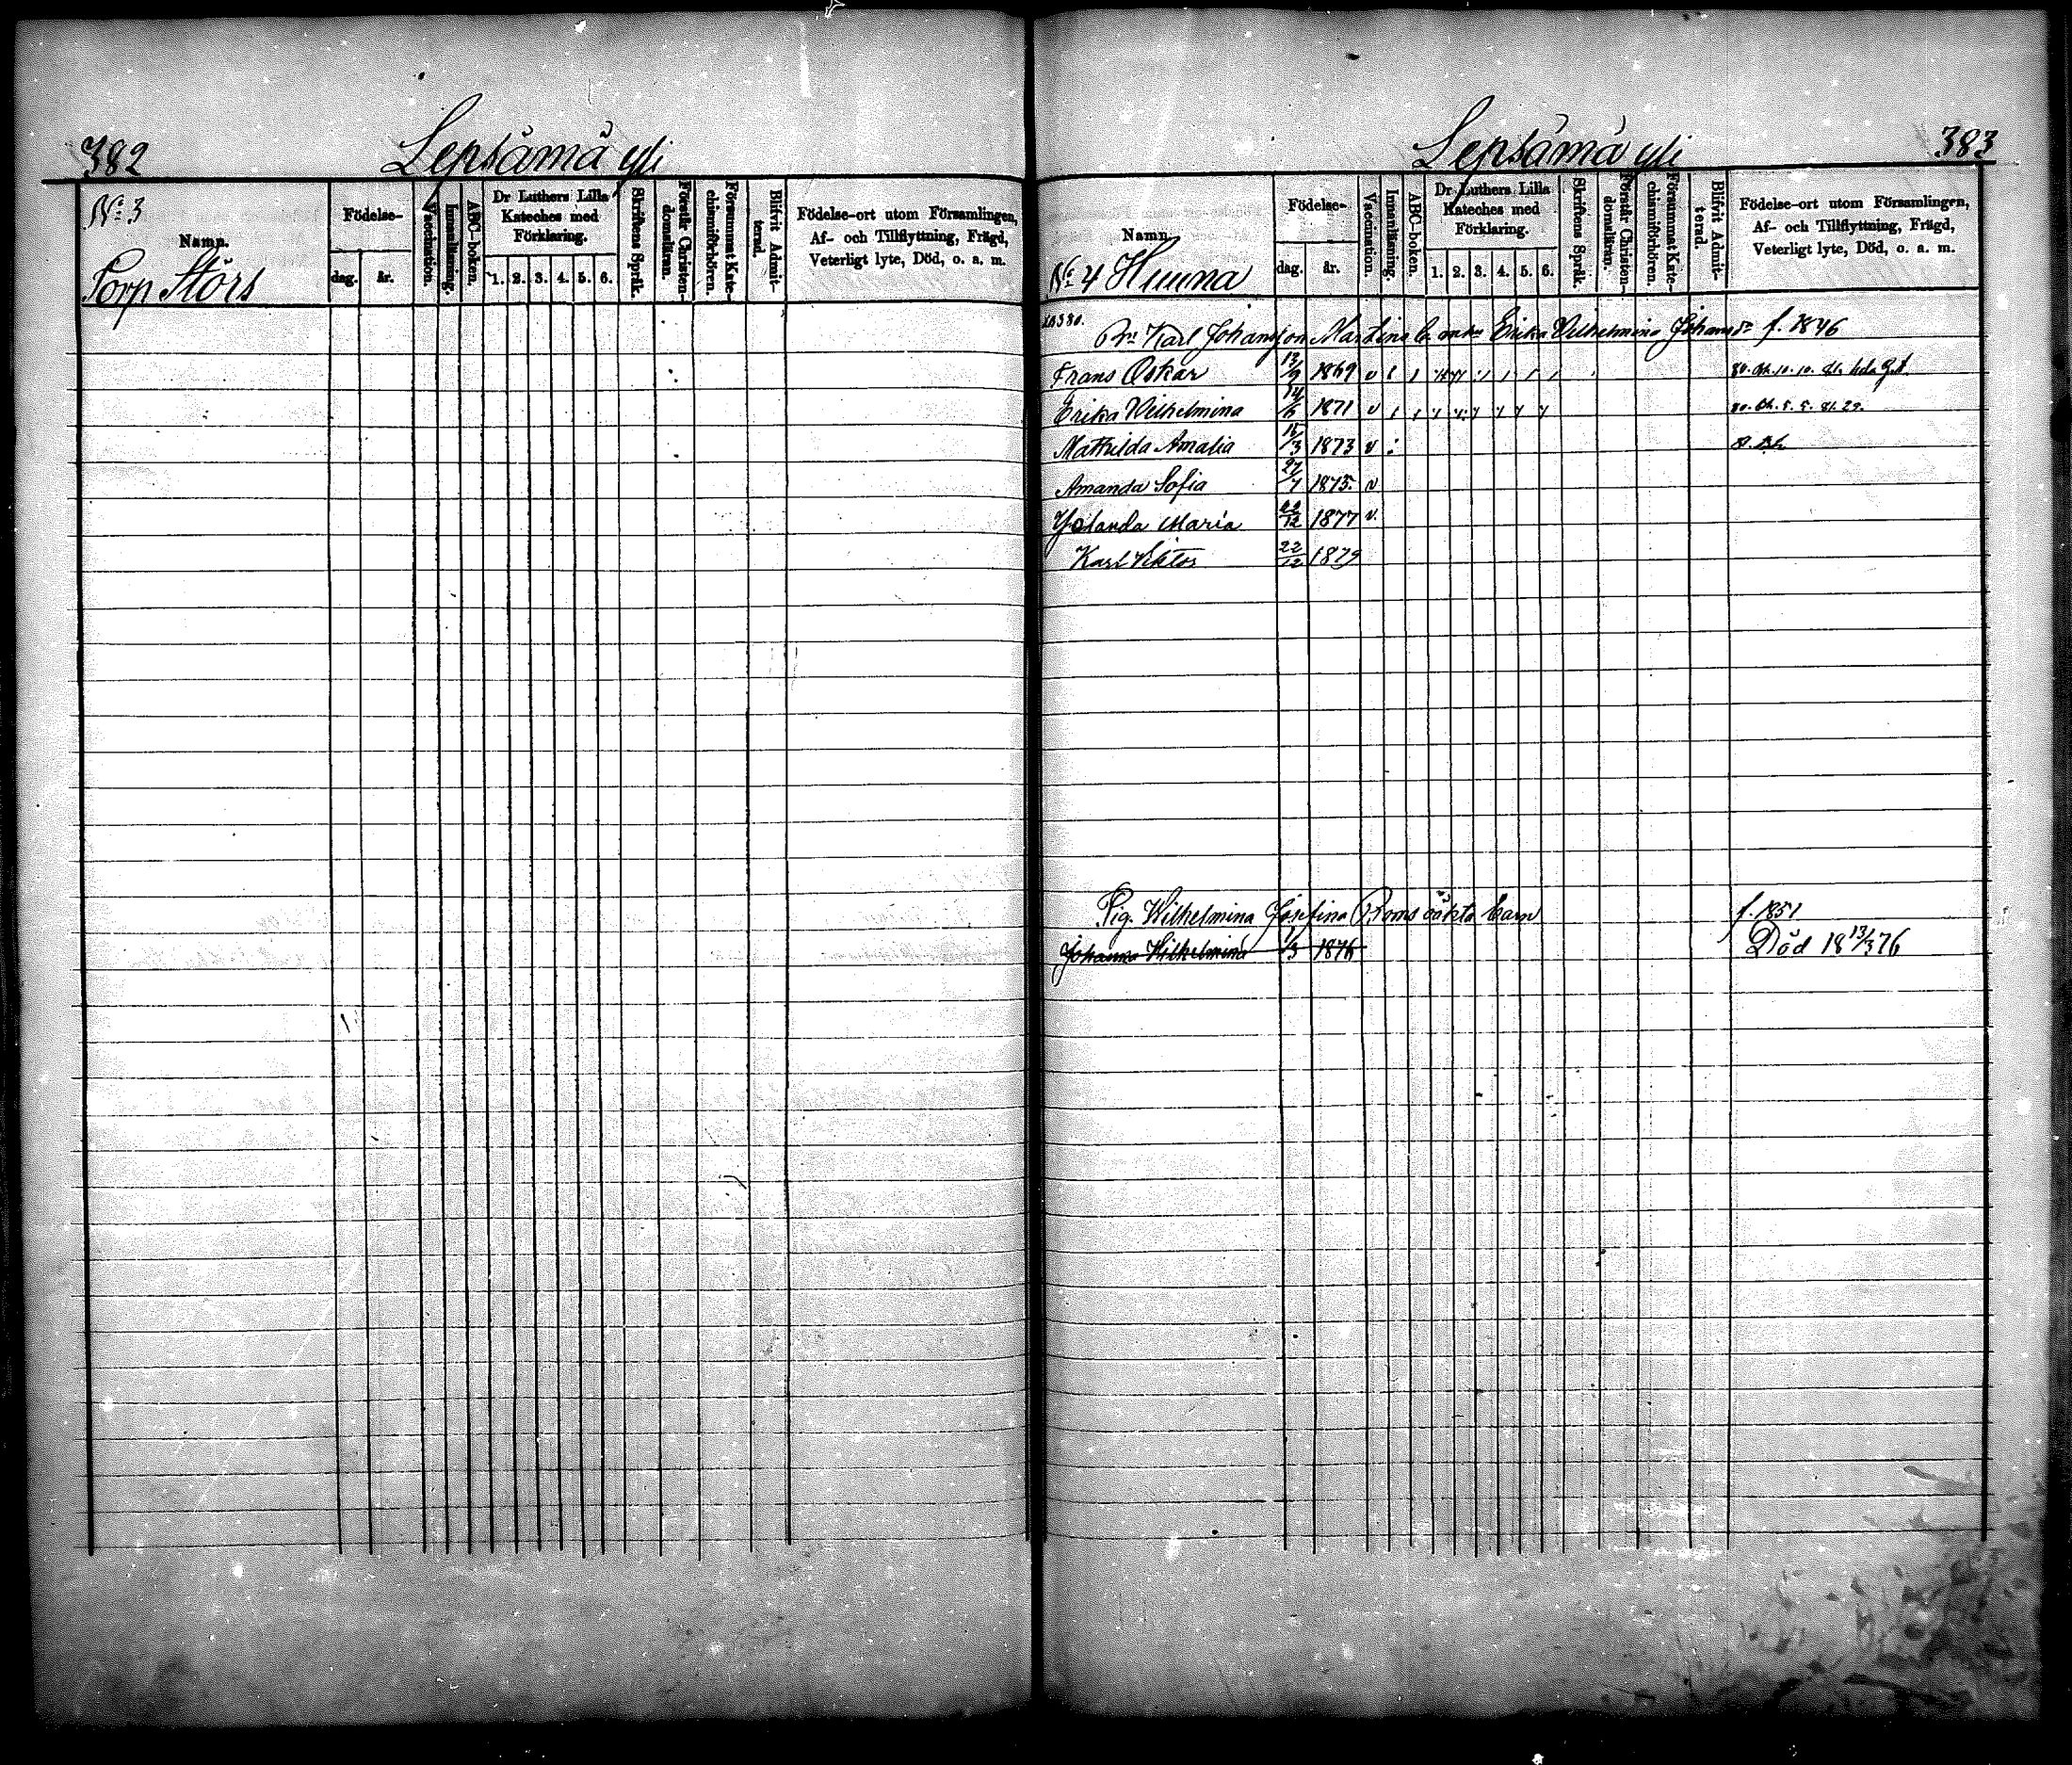 382 Lepsämä yli
№ 3
Namn.
Torp Störs
Födelse-
dag. år.
Vaccination.
Innanläsning.
ABC-boken.
Dr Luthers Lilla
Kateches med
Förklaring.
1. 2. 3. 4. 5. 6.
Skriftens Språk.
Förstår Christen-
domsläran.
Försummat Kate-
chismiförhören.
Blifvit Admit-
terad.
Födelse-ort utom Församlingen,
Af- och Tillflyttning, Frägd,
Veterligt lyte, Död, o. a. m.
Lepsämä yli 383
Namn.
№ 4 Huuna
Födelse-
dag. år.
Vaccination.
Innanläsning.
ABC-boken.
Dr Luthers Lilla
Kateches med
Förklaring.
1. 2. 3. 4. 5. 6.
Skriftens Språk.
Förstår Christen-
domsläran.
Försummat Kate-
chismiförhören.
Blifvit Admit-
terad.
Födelse-ort utom Församlingen,
Af- och Tillflyttning, Frägd,
Veterligt lyte, Död, o. a. m.
380.
Karl Johansson Martins Erika Vilhelmina Johans dr f. 1846
Frans Oskar 13/9 1869 v
Erika Vilhelmina 14/6 1871 v
Mathilda Amalia 15/3 1873 v
Amanda Sofia 27/7 1875. v
Yolanda Maria 22/12 1877 v.
Karl Viktor 22/12 1879
Pig. Wilhelmina Josefina Roms oäkta barn f. 1851
Johanna Wilhelmina 1/3 1876 Död 18 13/3 76